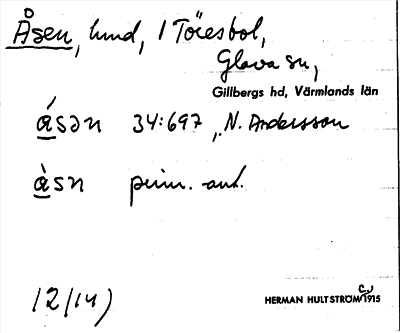 Åsen, hmd, i Töresbol,
Glava sn,
Gillbergs hd, Värmlands län
åsən 34:697, N. Andersson
åsn prim. ant.
12/14)
HERMAN HULTSTRÖM 1915